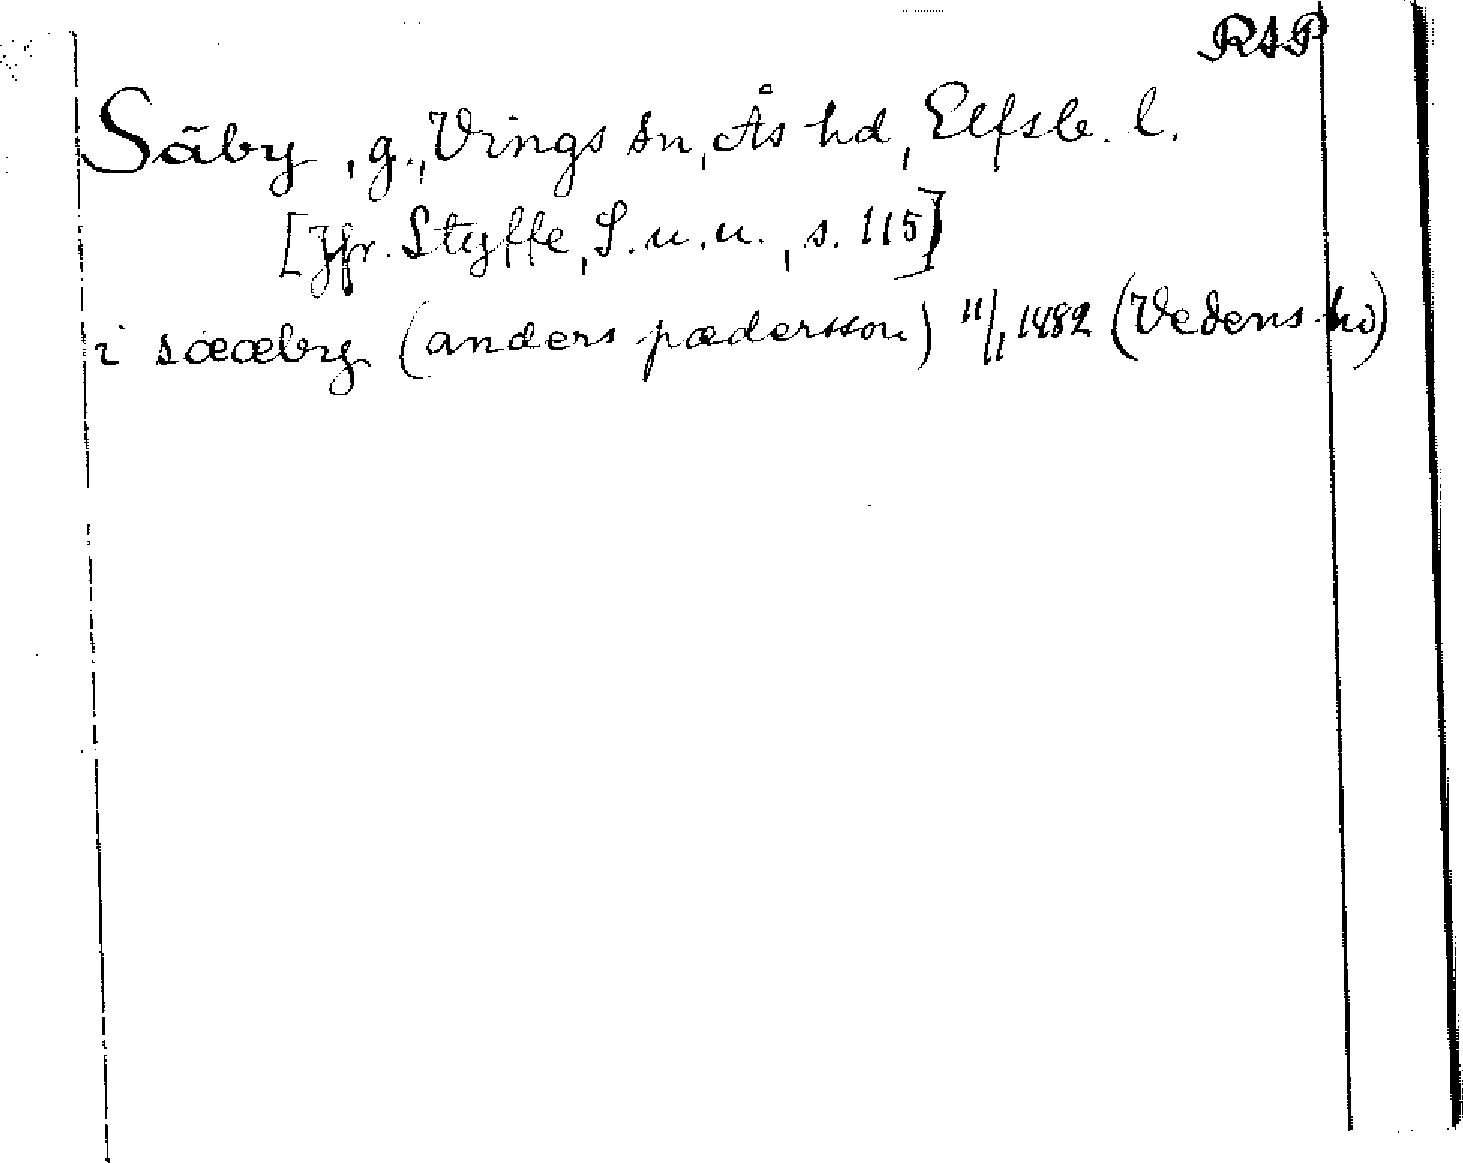 RAP
Säby, g., Vings sn, Ås hd, Elfsb. l.
[Jfr. Styffe, S. u. u., s. 115]
i sææby (anders pædersson) 11/1 1482 (Vedens hd)